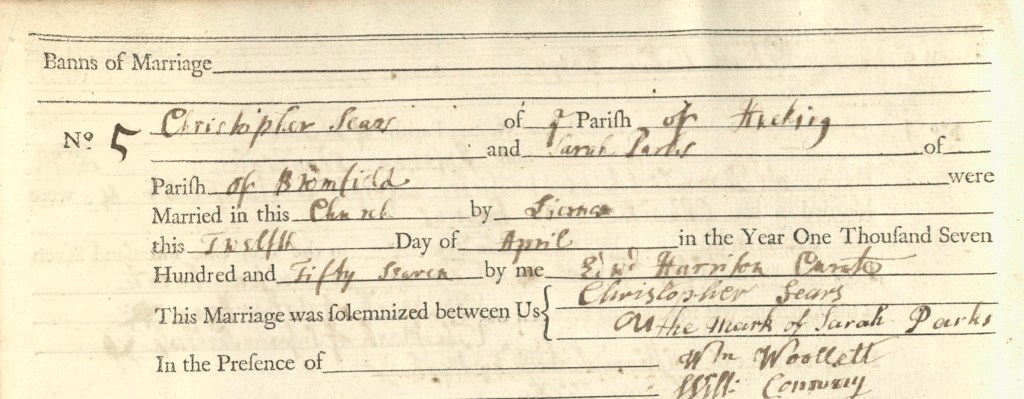 Banns of Marriage
No. 5 Christopher Sears of ye Parish of Hucking
and Sarah Parks of
Parish of Bromfield were
Married in this Church by Licence
this Twelfth Day of April in the Year One Thousand Seven
Hundred and Fifty Seaven by me Edwd Harrison Curate
This Marriage was solemnized between Us { Christopher Sears
the mark of Sarah Parks
In the Presence of Wm Woollett
Will: